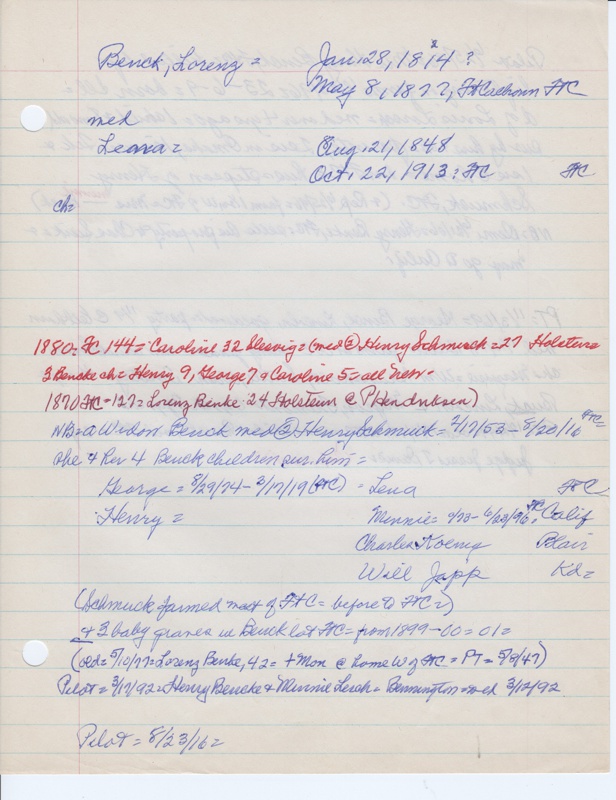 Benck, Lorenz = Jan. 28, 1814 ?
May 8, 1877, Ft Calhoun FTC
med
Leana = Aug. 21, 1848
Oct. 22, 1913: FTC FTC
ch =
1880 = FC 144 = Caroline 32 Slesvig = (med @ Henry Schmuck = 27 Holstens
3 Bencke ch = Henry 9, George 7 & Caroline 5 = all Nebr.
1870 FTC - 127 = Lorenz Benke 24 Holstein @ P Hendricksen)
NB = a Widow Benck med @ Henry Schmuck = 2/17/53 - 8/20/16 FTC
she & Her 4 Benck children sur. him =
George = 8/29/74 - 3/17/19 (FTC) = Lena FTC
Henry = Minnie = 9/73 - 6/23/96 FTC, Calif
Charles Koenig Blair
Will Japp Kd =
(Schmuck farmed west of FTC = before to FTC =)
+ 3 baby graves in Benck lot FTC = from 1899 - 00 = 01 =
(old = 5/10/77 = Lorenz Benke, 42 = + Mon @ home W of FTC = PT = 5/5/47)
Pilot = 3/17/92 = Henry Bencke & Minnie = Bennington = med 3/12/92
Pilot = 8/23/16 =